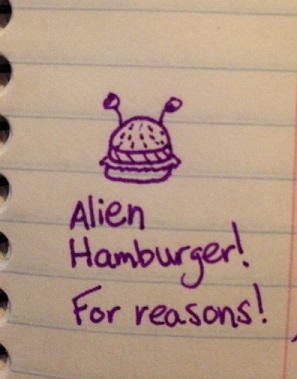 Alien
Hamburger!
For reasons!